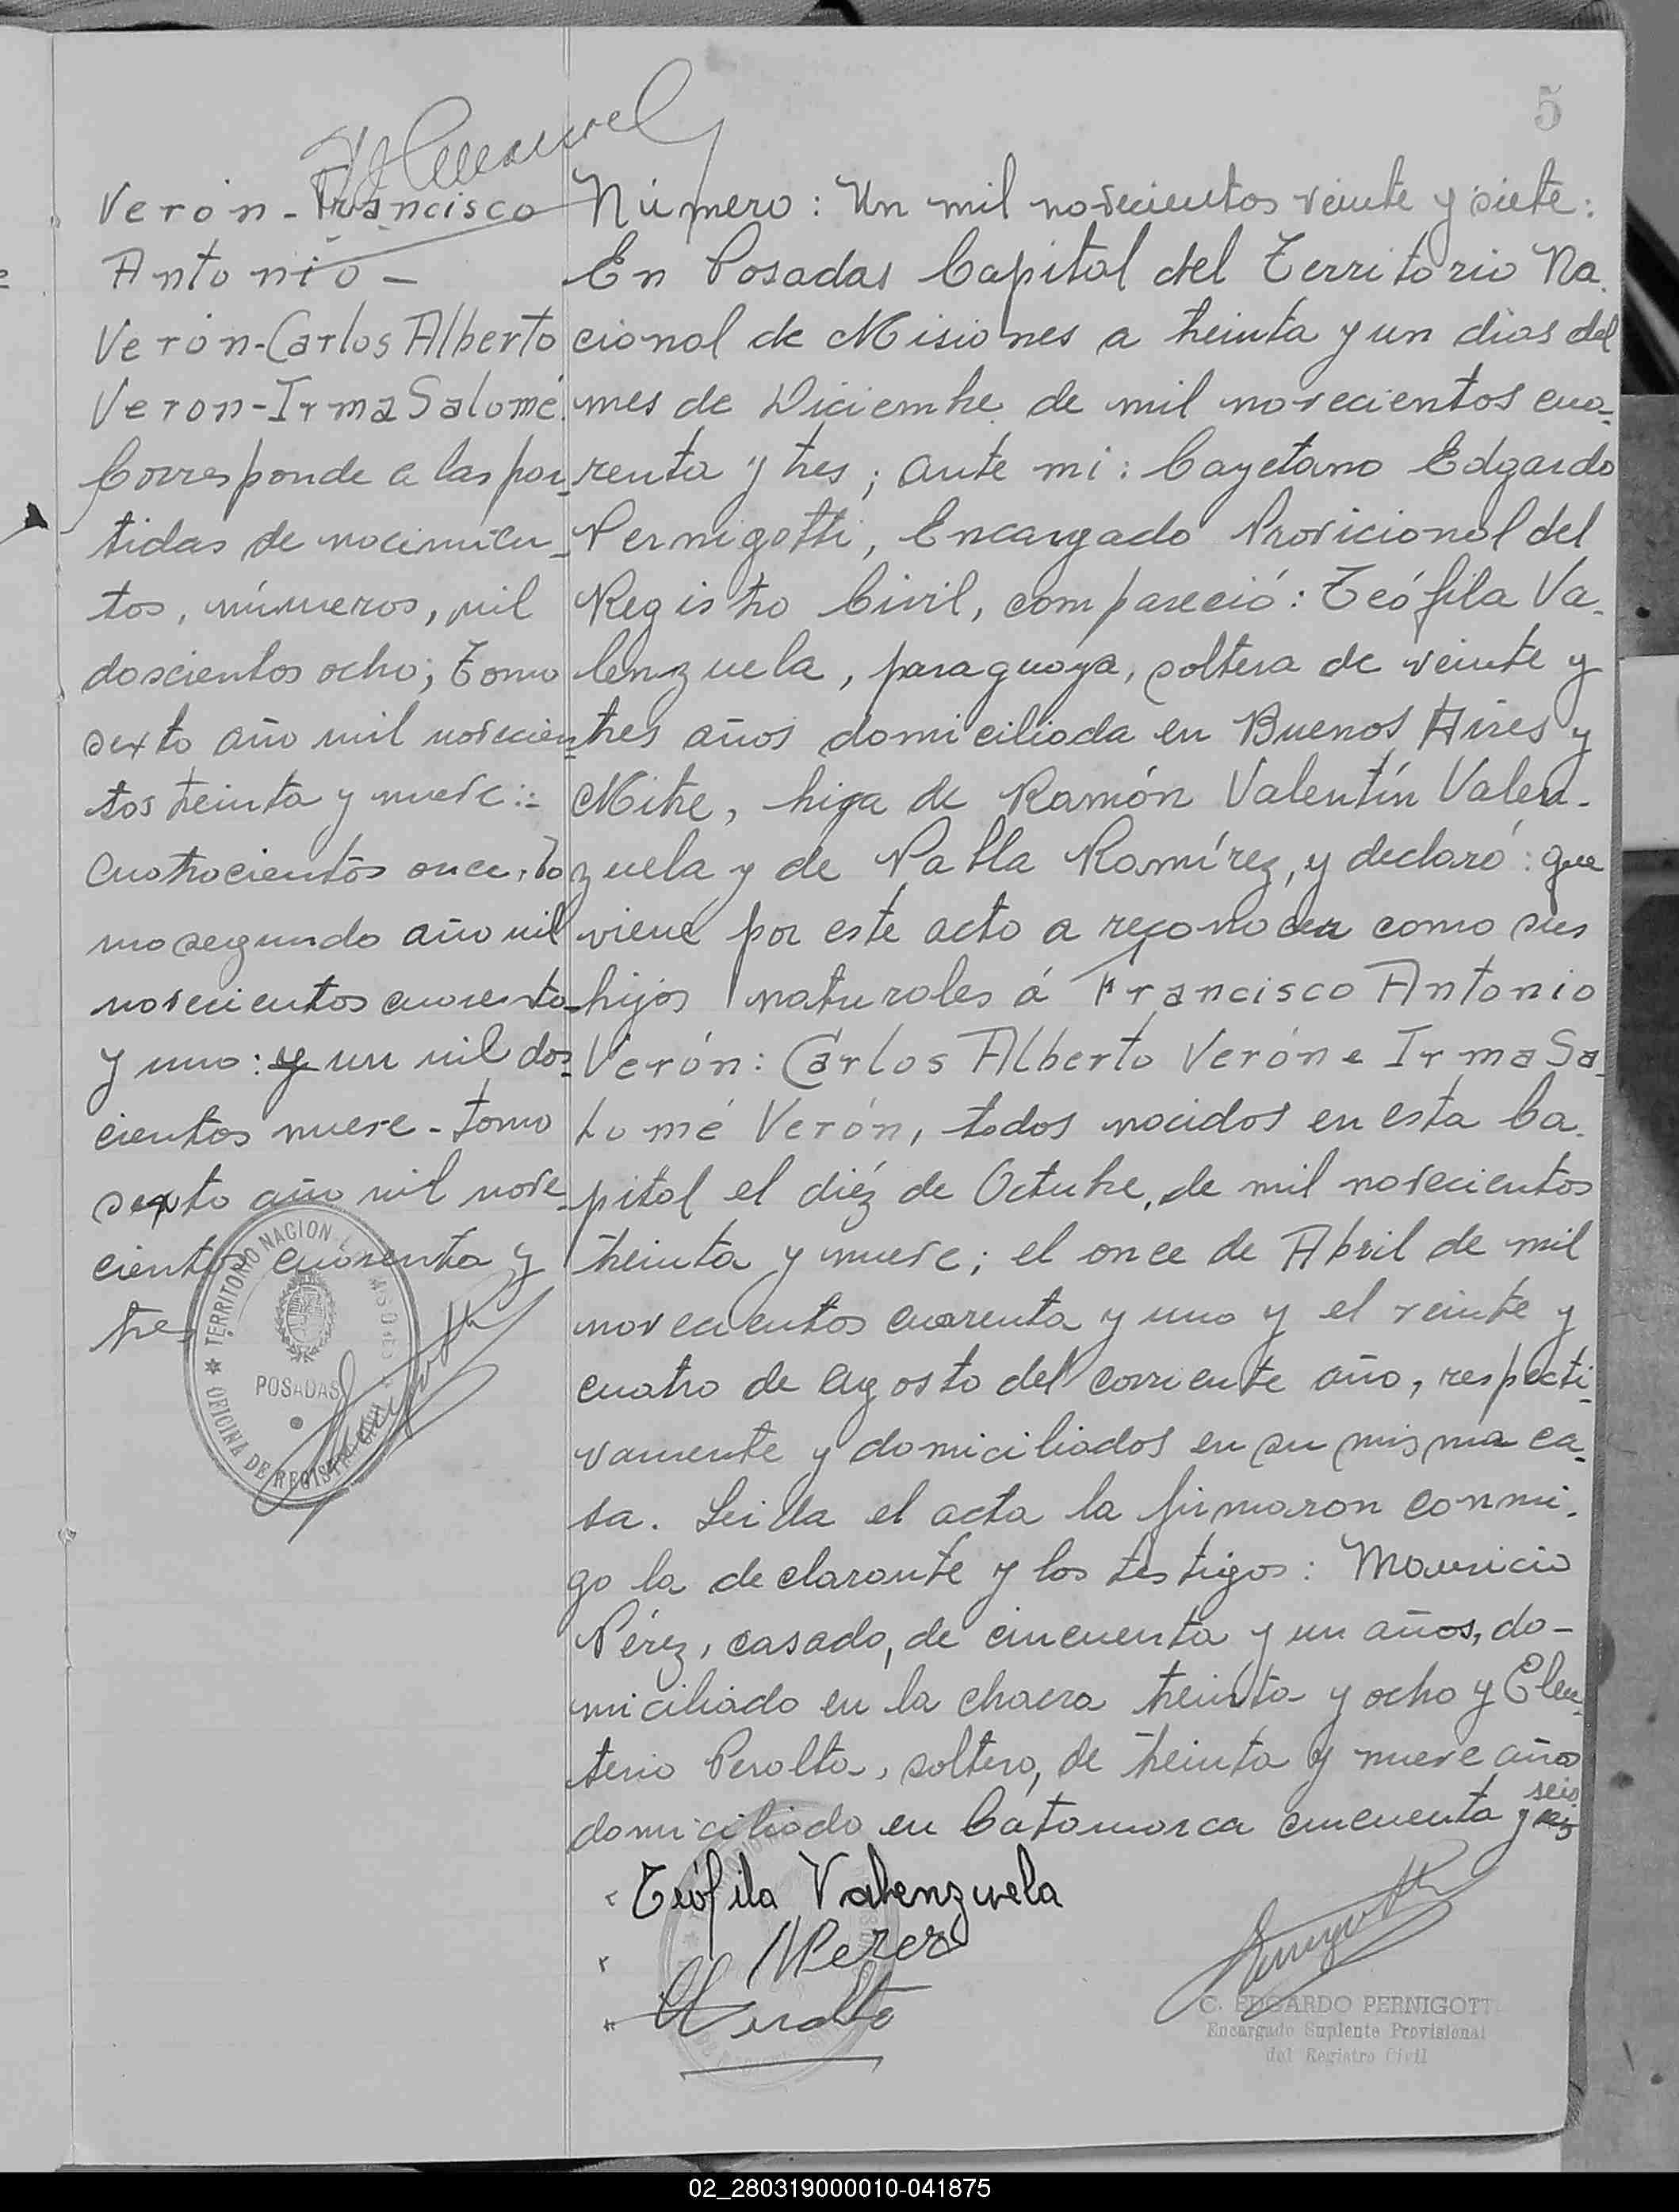 5
Verón - Francisco
Antonio -
Verón - Carlos Alberto
Veron - Irma Salomé.
Corresponde a las par-
tidas de nacimien-
tos, números, mil
doscientos ocho; Tomo
sexto año mil novecien-
tos treinta y nueve:-
Cuatrocientos once, To
mo segundo año mil
novecientos cuarenta
y uno: y un mil dos-
cientos nueve - tomo
sexto año mil nove-
cientos cuarenta y
tres
TERRITORIO NACIONAL MISIONES
POSADAS
OFICINA DE REGISTRO CIVIL
Número: Un mil novecientos veinte y siete:
En Posadas Capital del Territorio Na-
cional de Misiones a treinta y un dias del
mes de Diciembre de mil novecientos cua-
renta y tres; ante mi: Cayetano Edgardo
Pernigotti, Encargado Provicional del
Registro Civil, compareció: Teófila Va-
lenzuela, paraguaya, soltera de veinte y
tres años domiciliada en Buenos Aires y
Mitre, hija de Ramón Valentín Valen-
zuela y de Pabla Ramírez, y declaró: que
viene por este acto a reconocer como sus
hijos naturales á Francisco Antonio
Verón: Carlos Alberto Verón e Irma Sa-
lomé Verón, todos nacidos en esta Ca-
pital el diéz de Octubre, de mil novecientos
treinta y nueve; el once de Abril de mil
novecientos cuarenta y uno y el veinte y
cuatro de Agosto del corriente año, respecti-
vamente y domiciliados en su misma ca-
sa. Leida el acta la firmaron conmi-
go la declarante y los testigos: Mauricio
Pérez, casado, de cincuenta y un años, do-
miciliado en la chacra treinta y ocho y Eleu-
terio Peralta, soltero, de treinta y nueve años
seis
domiciliado en Catamarca cincuenta y
Teófila Valenzuela
MPerez
Peralta
C. EDGARDO PERNIGOTTI
Encargado Suplente Provisional
del Registro Civil
02_280319000010-041875